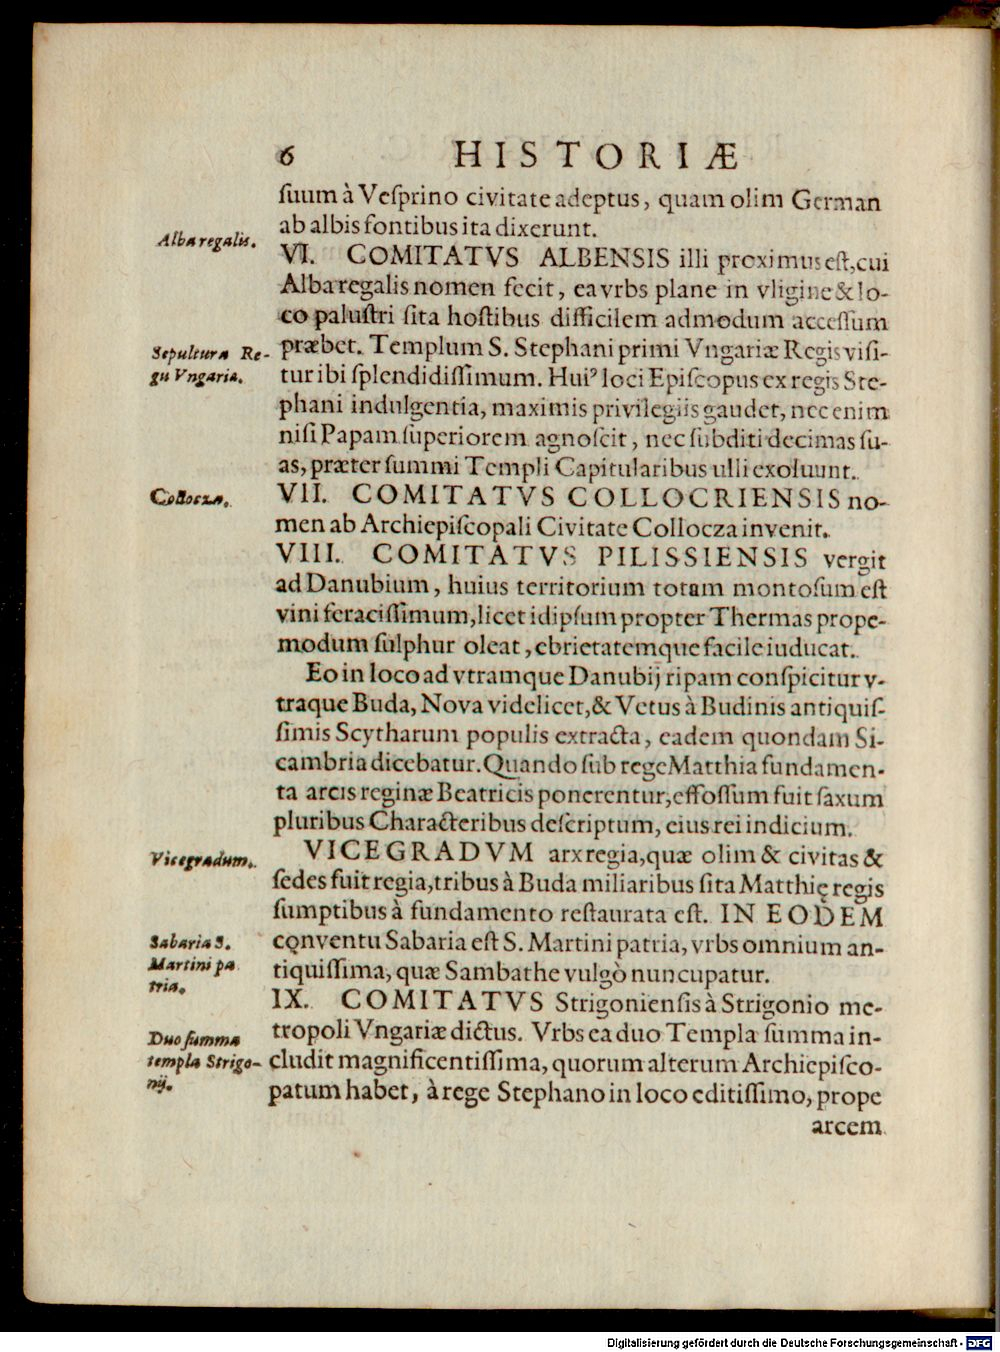 6 HISTORIÆ
ſuum à Veſprino civitate adeptus, quam olim German
ab albis fontibus ita dixerunt.
Alba regalis.
VI. COMITATVS ALBENSIS illi proximus eſt, cui
Alba regalis nomen fecit, ea vrbs plane in vligine & lo-
co paluſtri ſita hoſtibus difficilem admodum acceſſum
Sepultura Re-
gũ Vngaria.
præbet. Templum S. Stephani primi Vngariæ Regis viſi-
tur ibi ſplendidiſſimum. Huiꝰ loci Epiſcopus ex regis Ste-
phani indulgentia, maximis privilegiis gaudet, nec enim
niſi Papam ſuperiorem agnoſcit, nec ſubditi decimas ſu-
as, præter ſummi Templi Capitularibus ulli exolvunt.
Collocza.
VII. COMITATVS COLLOCRIENSIS no-
men ab Archiepiſcopali Civitate Collocza invenit.
VIII. COMITATVS PILISSIENSIS vergit
ad Danubium, huius territorium totam montoſum eſt
vini feraciſſimum, licet idipſum propter Thermas prope-
modum ſulphur oleat, ebrietatemque facile iuducat.
Eo in loco ad vtramque Danubij ripam conſpicitur v-
traque Buda, Nova videlicet, & Vetus à Budinis antiquiſ-
ſimis Scytharum populis extracta, eadem quondam Si-
cambria dicebatur. Quando ſub rege Matthia fundamen-
ta arcis reginæ Beatricis ponerentur, effoſſum fuit ſaxum
pluribus Characteribus deſcriptum, eius rei indicium.
Vicegradum.
VICEGRADVM arx regia, quæ olim & civitas &
ſedes fuit regia, tribus à Buda miliaribus ſita Matthię regis
ſumptibus à fundamento reſtaurata eſt. IN EODEM
Sabaria S.
Martini pa
tria.
conventu Sabaria eſt S. Martini patria, vrbs omnium an-
tiquiſſima, quæ Sambathe vulgò nuncupatur.
IX. COMITATVS Strigonienſis à Strigonio me-
tropoli Vngariæ dictus. Vrbs ea duo Templa ſumma in-
Duo ſumma
templa Strigo-
nij.
cludit magnificentiſſima, quorum alterum Archiepiſco-
patum habet, à rege Stephano in loco editiſſimo, prope
arcem
Digitalisierung gefördert durch die Deutsche Forschungsgemeinschaft - DFG